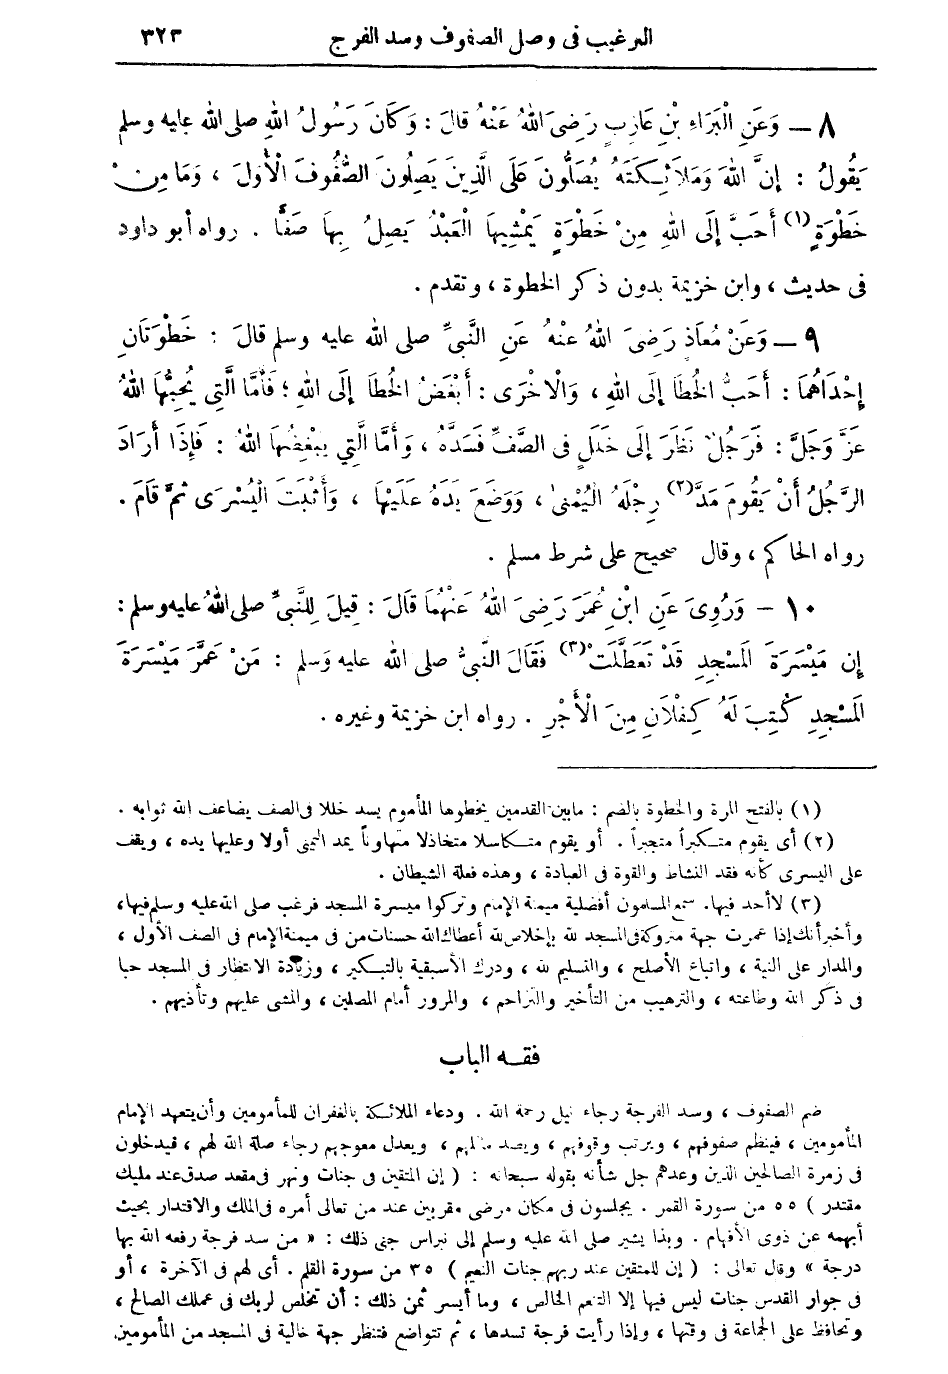 الترغيب فى وصل الصفوف وسد الفرج ٣٢٣
٨ ــ وَعَنِ الْبَرَاءِ بْنِ عَازِبٍ رَضِىَ اللهُ عَنْهُ قَالَ : وَكَانَ رَسُولُ اللهِ صلى الله عليه وسلم
يَقُولُ : إِنَّ اللهَ وَمَلاَئِكَتَهُ يُصَلُّونَ عَلَى الَّذِينَ يَصِلُونَ الصُّفُوفَ الْأُوَلَ ، وَمَا مِنْ
خَطْوَةٍ (١) أَحَبَّ إِلَى اللهِ مِنْ خَطْوَةٍ يَمْشِيهَا الْعَبْدُ يَصِلُ بِهَا صَفًّا . رواه أبو داود
فى حديث ، وابن خزيمة بدون ذكر الخطوة ، وتقدم .
٩ ــ وَعَنْ مُعَاذٍ رَضِىَ اللهُ عَنْهُ عَنِ النَّبِىِّ صلى الله عليه وسلم قَالَ : خَطْوَتَانِ
إِحْدَاهُمَا : أَحَبُّ الْخُطَا إِلَى اللهِ ، وَالْأُخْرَى : أَبْغَضُ الْخُطَا إِلَى اللهِ ؛ فَأَمَّا الَّتِى يُحِبُّهَا اللهُ
عَزَّ وَجَلَّ : فَرَجُلٌ نَظَرَ إِلَى خَلَلٍ فى الصَّفِّ فَسَدَّهُ ، وَأَمَّا الَّتِي يبْغُضُهَا اللهُ : فَإِذَا أَرَادَ
الرَّجُلُ أَنْ يَقُومَ مَدَّ (٢) رِجْلَهُ الْيُمْنَى ، وَوَضَعَ يَدَهُ عَلَيْهَا ، وَأَثْبَتَ الْيُسْرَى ثُمَّ قَامَ .
رواه الحاكم ، وقال صحيح على شرط مسلم .
١٠ – وَرُوِىَ عَنِ ابْنِ عُمَرَ رَضِىَ اللهُ عَنْهُمَا قَالَ : قِيلَ لِلنَّبِىِّ صلى اللهُ عليه وسلم :
إِن مَيْسَرَةَ الْمَسْجِدِ قَدْ تَعَطَّلَتْ (٣) فَقَالَ النَّبِىُّ صلى الله عليه وسلم : مَنْ عَمَّرَ مَيْسَرَةَ
الْمَسْجِدِ كُتِبَ لَهُ كِفْلَانِ مِنَ الْأَجْرِ . رواه ابن خزيمة وغيره .
(١) بالفتح المرة والخطوة بالضم : مابين القدمين يخطوها المأموم يسد خللا فى الصف يضاعف الله ثوابه .
(٢) أى يقوم متكبراً متجبراً . أو يقوم متكاسلا متخاذلا متهاوناً يمد اليمنى أولا وعليها يده ، ويقف
على اليسرى كأنه فقد النشاط والقوة فى العبادة ، وهذه فعلة الشيطان .
(٣) لاأحد فيها. سمع المسلمون أفضلية ميمنة الإمام وتركوا ميسرة المسجد فرغب صلى الله عليه وسلم فيها،
وأخبر أنك إذا عمرت جهة متروكة فى المسجد لله بإخلاص لله أعطاك الله حسنات من فى ميمنة الإمام فى الصف الأول ،
والمدار على النية ، واتباع الأصلح ، والتسليم لله ، ودرك الأسبقية بالتبكير ، وزيادة الانتظار فى المسجد حبا
فى ذكر الله وطاعته ، والترهيب من التأخير والتزاحم ، والمرور أمام المصلين ، والمشى عليهم وتأذيهم .
فقه الباب
ضم الصفوف ، وسد الفرجة رجاء نيل رحمة الله . ودعاء الملائكة بالغفران للمأمومين وأن يتعهد الإمام
المأمومين ، فينظم صفوفهم ، ويرتب وقوفهم ، ويصد ، ويعدل معوجهم رجاء صلة الله لهم ، فيدخلون
فى زمرة الصالحين الذين وعدهم جل شأنه بقوله سبحانه : ( إن المتقين فى جنات ونهر فى مقعد صدق عند مليك
مقتدر ) ٥٥ من سورة القمر . يجلسون فى مكان مرضى مقربين عند من تعالى أمره فى الملك والاقتدار بحيث
أبهمه عن ذوى الأفهام . وبذا يشير صلى الله عليه وسلم إلى نبراس جنى ذلك : « من سد فرجة رفعه الله بها
درجة » وقال تعالى : ( إن للمتقين عند ربهم جنات النعيم ) ٣٥ من سورة القلم . أى لهم فى الآخرة ، أو
فى جوار القدس جنات ليس فيها إلا التنعم الخالص ، وما أيسر ثمن ذلك : أن تخلص لربك فى عملك الصالح ،
وتحافظ على الجماعة فى وقتها ، وإذا رأيت فرجة تسدها ، ثم تتواضع فتنظر جهة خالية فى المسجد من المأمومين